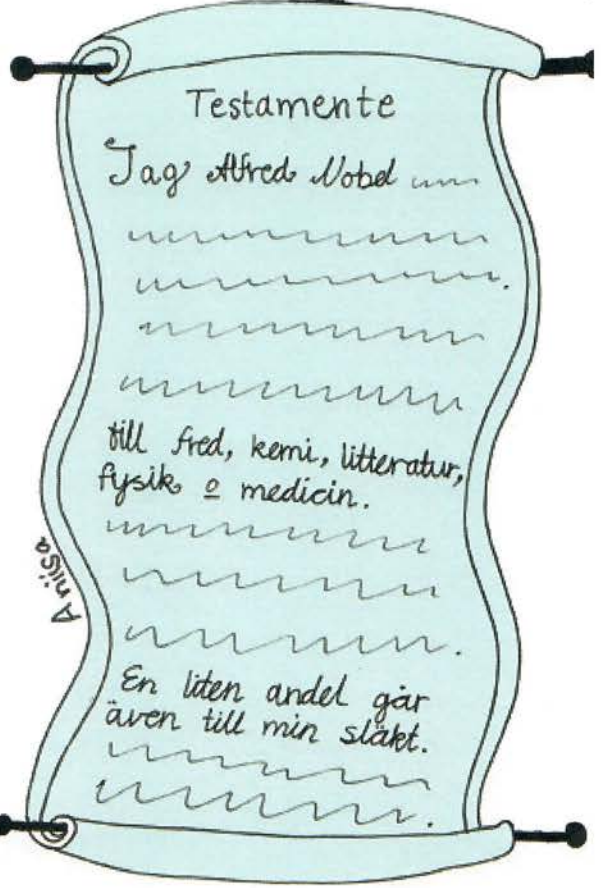 Testamente
Jag Alfred Nobel
till fred, kemi, litteratur,
fysik o medicin.
Aniisa
En liten andel går
även till min släkt.